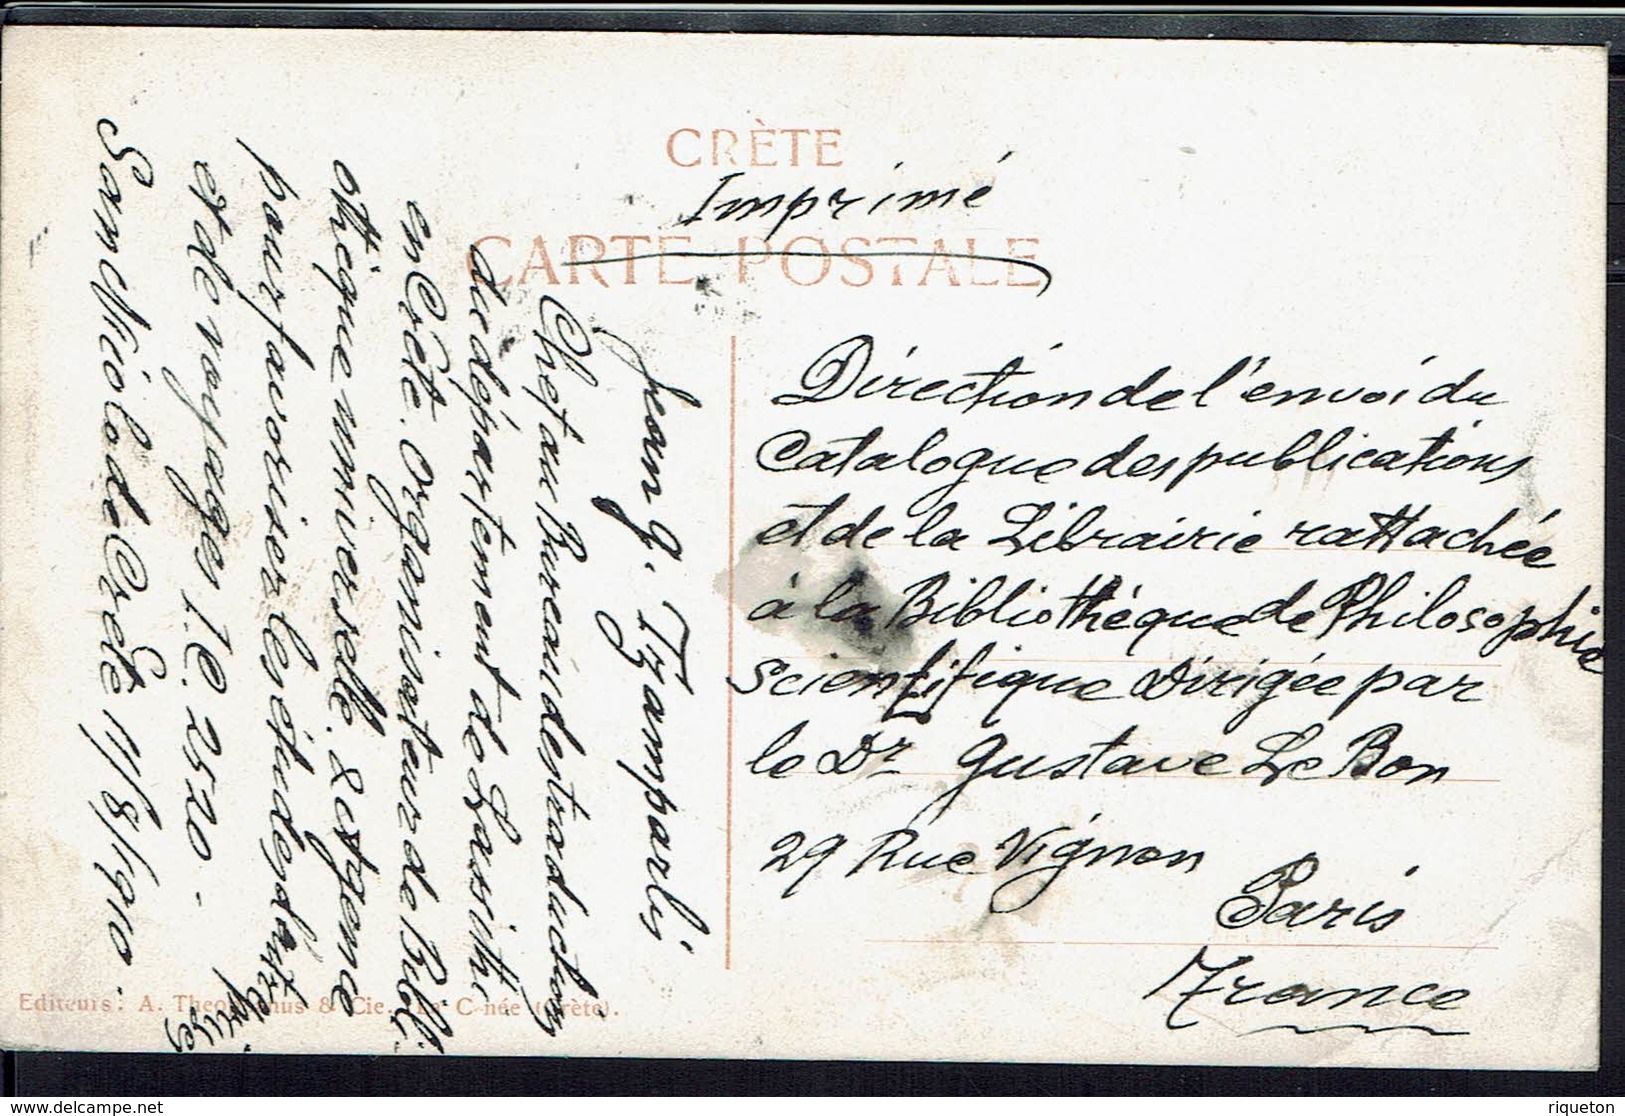 CRÈTE
Imprimé
CARTE POSTALE
Jean G. Tzamparlij
Chef au Bureau des traductions
du département de Lassithi
en Crète. Organisateur de Bibli
othèque universelle. & Agence
pour favoriser les études
et de voyages
San Nicolo de Crète 11/8/1910.
Direction de l'envoi du
Catalogue des publications
et de la Librairie rattachée
à la Bibliothèque de Philosophie
Scientifique Dirigée par
le Dr Gustave Le Bon
29 Rue Vignon
Paris
France
Editeurs: A. & Cie. La C née (Crète).
delcampe.net
riqueton